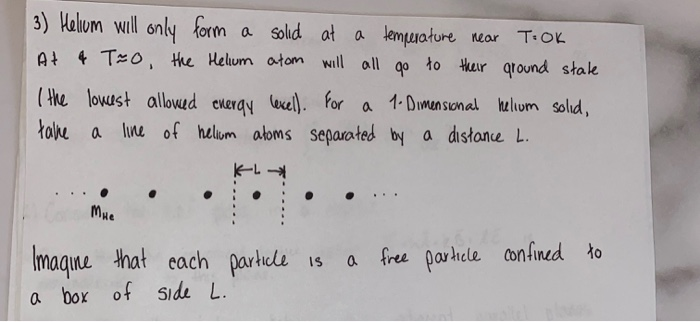 3) Helium will only form a solid at a temperature near T=0K
At & T≈0, the Helium atom will all go to their ground state
(the lowest allowed energy level). For a 1-Dimensional helium solid,
take a line of helium atoms separated by a distance L.
|←L→|
... • • • • • • ...
mHe
Imagine that each particle is a free particle confined to
a box of side L.